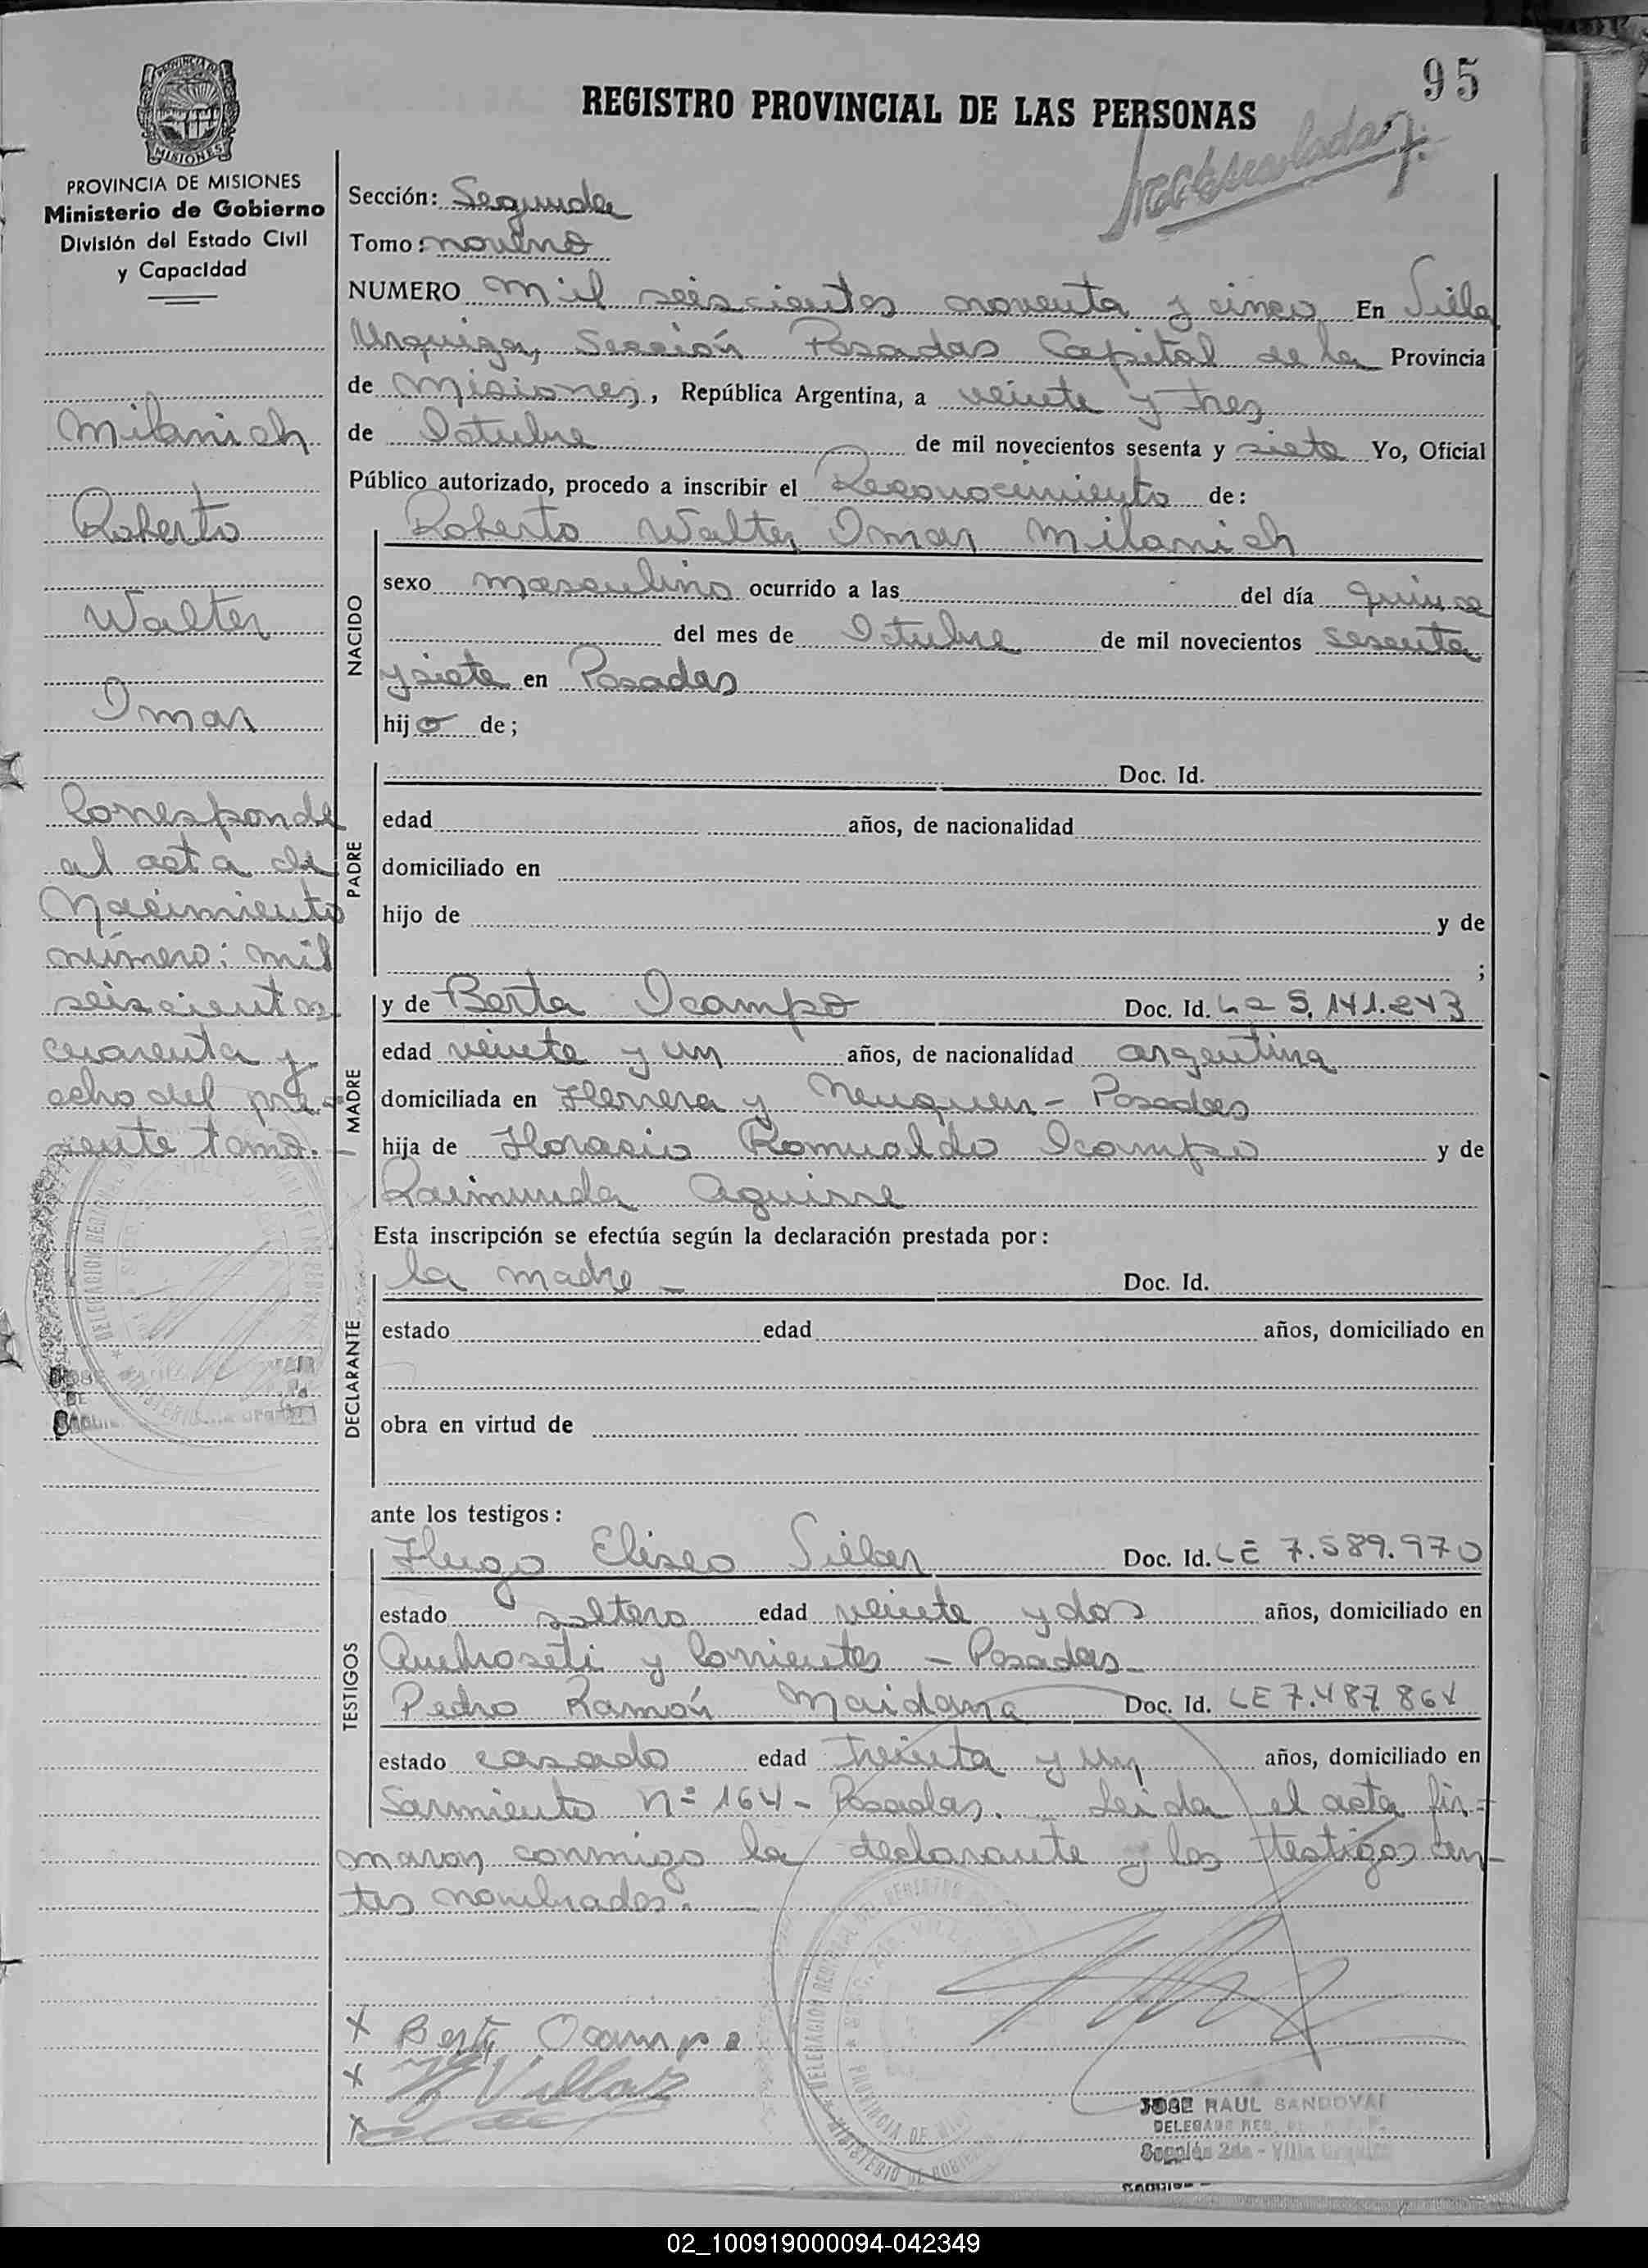 95
REGISTRO PROVINCIAL DE LAS PERSONAS
PROVINCIA DE MISIONES
Ministerio de Gobierno
División del Estado Civil
y Capacidad
Sección: Segunda
Tomo: noveno
NUMERO mil seiscientos noventa y cinco En Villa
Urquiza, Sección Posadas Capital de la Provincia
de Misiones, República Argentina, a veinte y tres
de Octubre de mil novecientos sesenta y siete Yo, Oficial
Público autorizado, procedo a inscribir el Reconocimiento de:
Roberto Walter Omar Milanich
NACIDO
sexo masculino ocurrido a las del día quince
del mes de Octubre de mil novecientos sesenta
y siete en Posadas
hijo de;
PADRE
Doc. Id.
edad años, de nacionalidad
domiciliado en
hijo de y de
;
MADRE
y de Berta Ocampo Doc. Id. LC 5.141.243
edad veinte y un años, de nacionalidad argentina
domiciliada en Herrera y Neuquen - Posadas
hija de Horacio Romualdo Ocampo y de
Raimunda Aguirre
Esta inscripción se efectúa según la declaración prestada por:
DECLARANTE
la madre - Doc. Id.
estado edad años, domiciliado en
obra en virtud de
ante los testigos:
TESTIGOS
Hugo Eliseo Villar Doc. Id. LE 7.589.970
estado soltero edad veinte y dos años, domiciliado en
y Corrientes - Posadas
Pedro Ramón Maidana Doc. Id. LE 7.487.864
estado casado edad treinta y un años, domiciliado en
Sarmiento Nº 164 - Posadas. Leida el acta fir=
maron conmigo la declarante y los testigos an-
tes nombrados.
x Berta Ocampo
x Villar
x
JOSE RAUL SANDOVAL
Sección 2da - Villa Urquiza
Milanich
Roberto
Walter
Omar
Corresponde
al acta de
Nacimiento
número: mil
seiscientos
cuarenta y
ocho del pre-
sente tomo. -
02_100919000094-042349